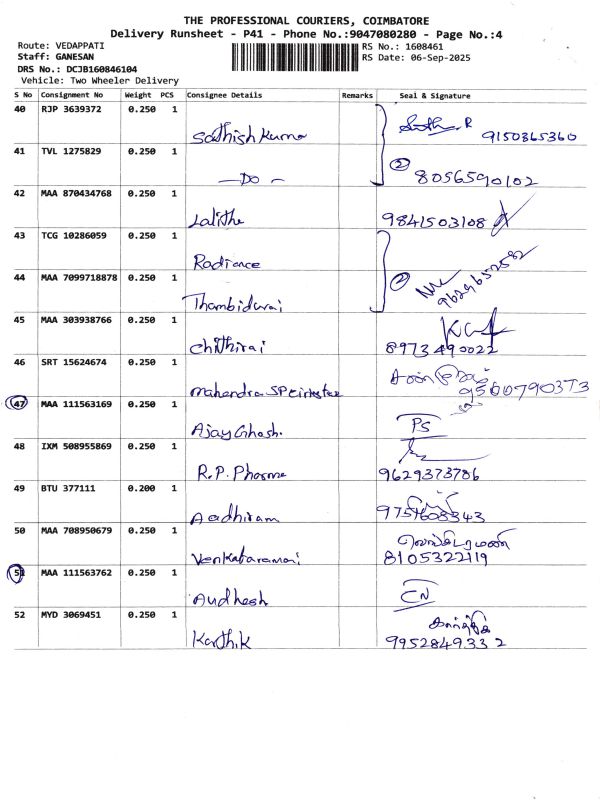 THE PROFESSIONAL COURIERS, COIMBATORE
Delivery Runsheet - P41 - Phone No.:9047080280 - Page No.:4
Route: VEDAPPATI
RS No.: 1608461
Staff: GANESAN
RS Date: 06-Sep-2025
DRS No.: DCJB160846104
Vehicle: Two Wheeler Delivery
S No Consignment No Weight PCS Consignee Details Remarks Seal & Signature
40 RJP 3639372 0.250 1
Sathish Kumar 9150365360
41 TVL 1275829 0.250 1
—Do— 2 8056590102
42 MAA 870434768 0.250 1
Lalitha 9841503108
43 TCG 10286059 0.250 1
Radiance
2 9629652582
44 MAA 7099718878 0.250 1
Thambidurai
45 MAA 303938766 0.250 1
Chithirai 8973490022
46 SRT 15624674 0.250 1
Mahendra SP 9500790373
47 MAA 111563169 0.250 1
Ajay Ghosh. PS
48 IXM 508955869 0.250 1
R.P. Pharma 9629373786
49 BTU 377111 0.200 1
Aadhiram 9751608343
50 MAA 708950679 0.250 1
வெங்கட்ரமணன்
Venkataramani 8105322119
51 MAA 111563762 0.250 1
Audhesh CN
52 MYD 3069451 0.250 1
கார்த்தி
Karthik 9952849332